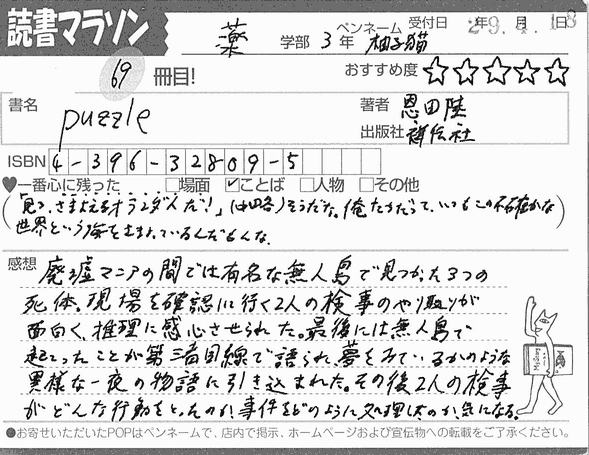 読書マラソン
薬 学部 3年 ペンネーム 柚子猫 受付日 29.4.18 年 月 日
69 冊目! おすすめ度 ☆☆☆☆☆
書名 puzzle 著者 恩田陸
出版社 祥伝社
ISBN 4-396-32809-5
♥一番心に残った □場面 ☑ことば □人物 □その他
(「見ろ、さまよえるオランダ人だ!」(中略)そうだな。俺たちだって、いつもこの不確かな
世界という海をさまよっているんだもんな。)
感想 廃墟マニアの間では有名な無人島で見つかった3つの
死体。現場を確認に行く2人の検事のやり取りが
面白く、推理に感心させられた。最後には無人島で
起こったことが第三者目線で語られ、夢をみているかのような
異様な一夜の物語に引き込まれた。その後2人の検事
がどんな行動をとったのか、事件をどのように処理したのか、気になる。
●お寄せいただいたPOPはペンネームで、店内で掲示、ホームページおよび宣伝物への転載をご了承ください。